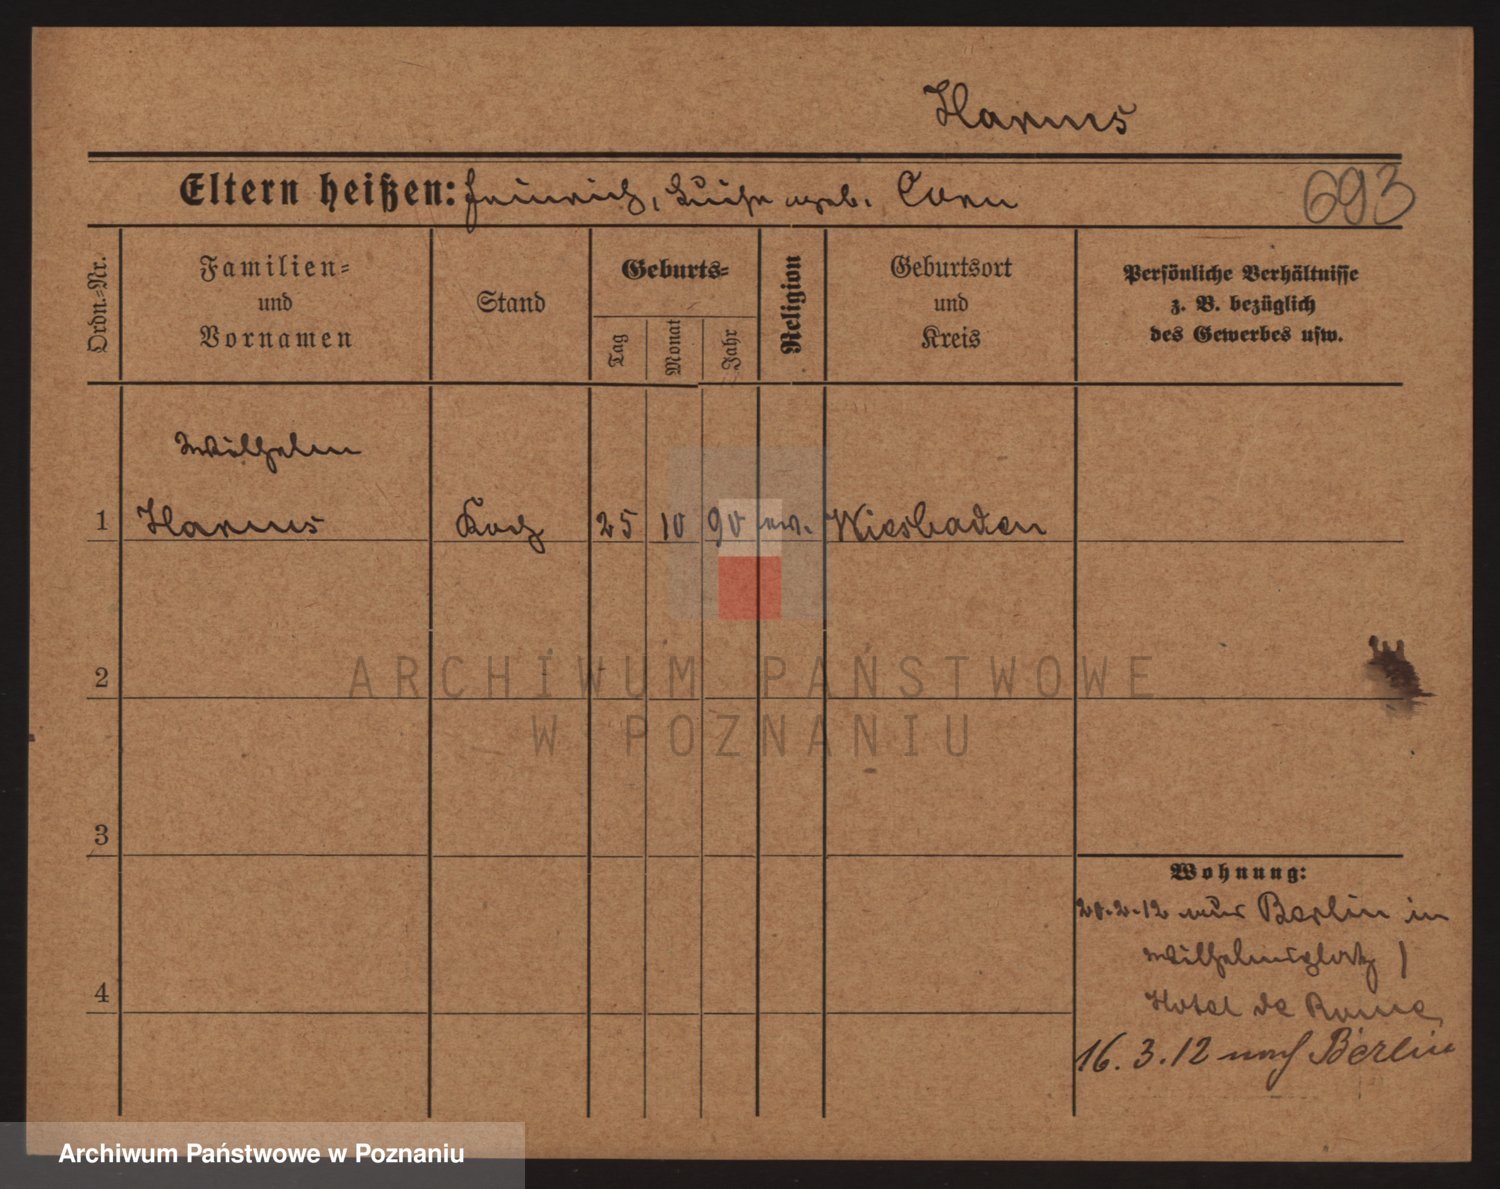 Harms
Eltern heißen: Heinrich, Luise geb. Corn
693
Ordn.-Nr.
Familien-
und
Vornamen
Stand
Geburts-
Tag
Monat
Jahr
Religion
Geburtsort
und
Kreis
Persönliche Verhältnisse
z. B. bezüglich
des Gewerbes usw.
Wilhelm
1 Harms Koch 25 10 90 ev. Wiesbaden
2
3
4
Wohnung:
20.2.12 aus Berlin in
Wilhelmsplatz 1
Hotel de Rome
16.3.12 nach Berlin
ARCHIWUM PAŃSTWOWE
W POZNANIU
Archiwum Państwowe w Poznaniu